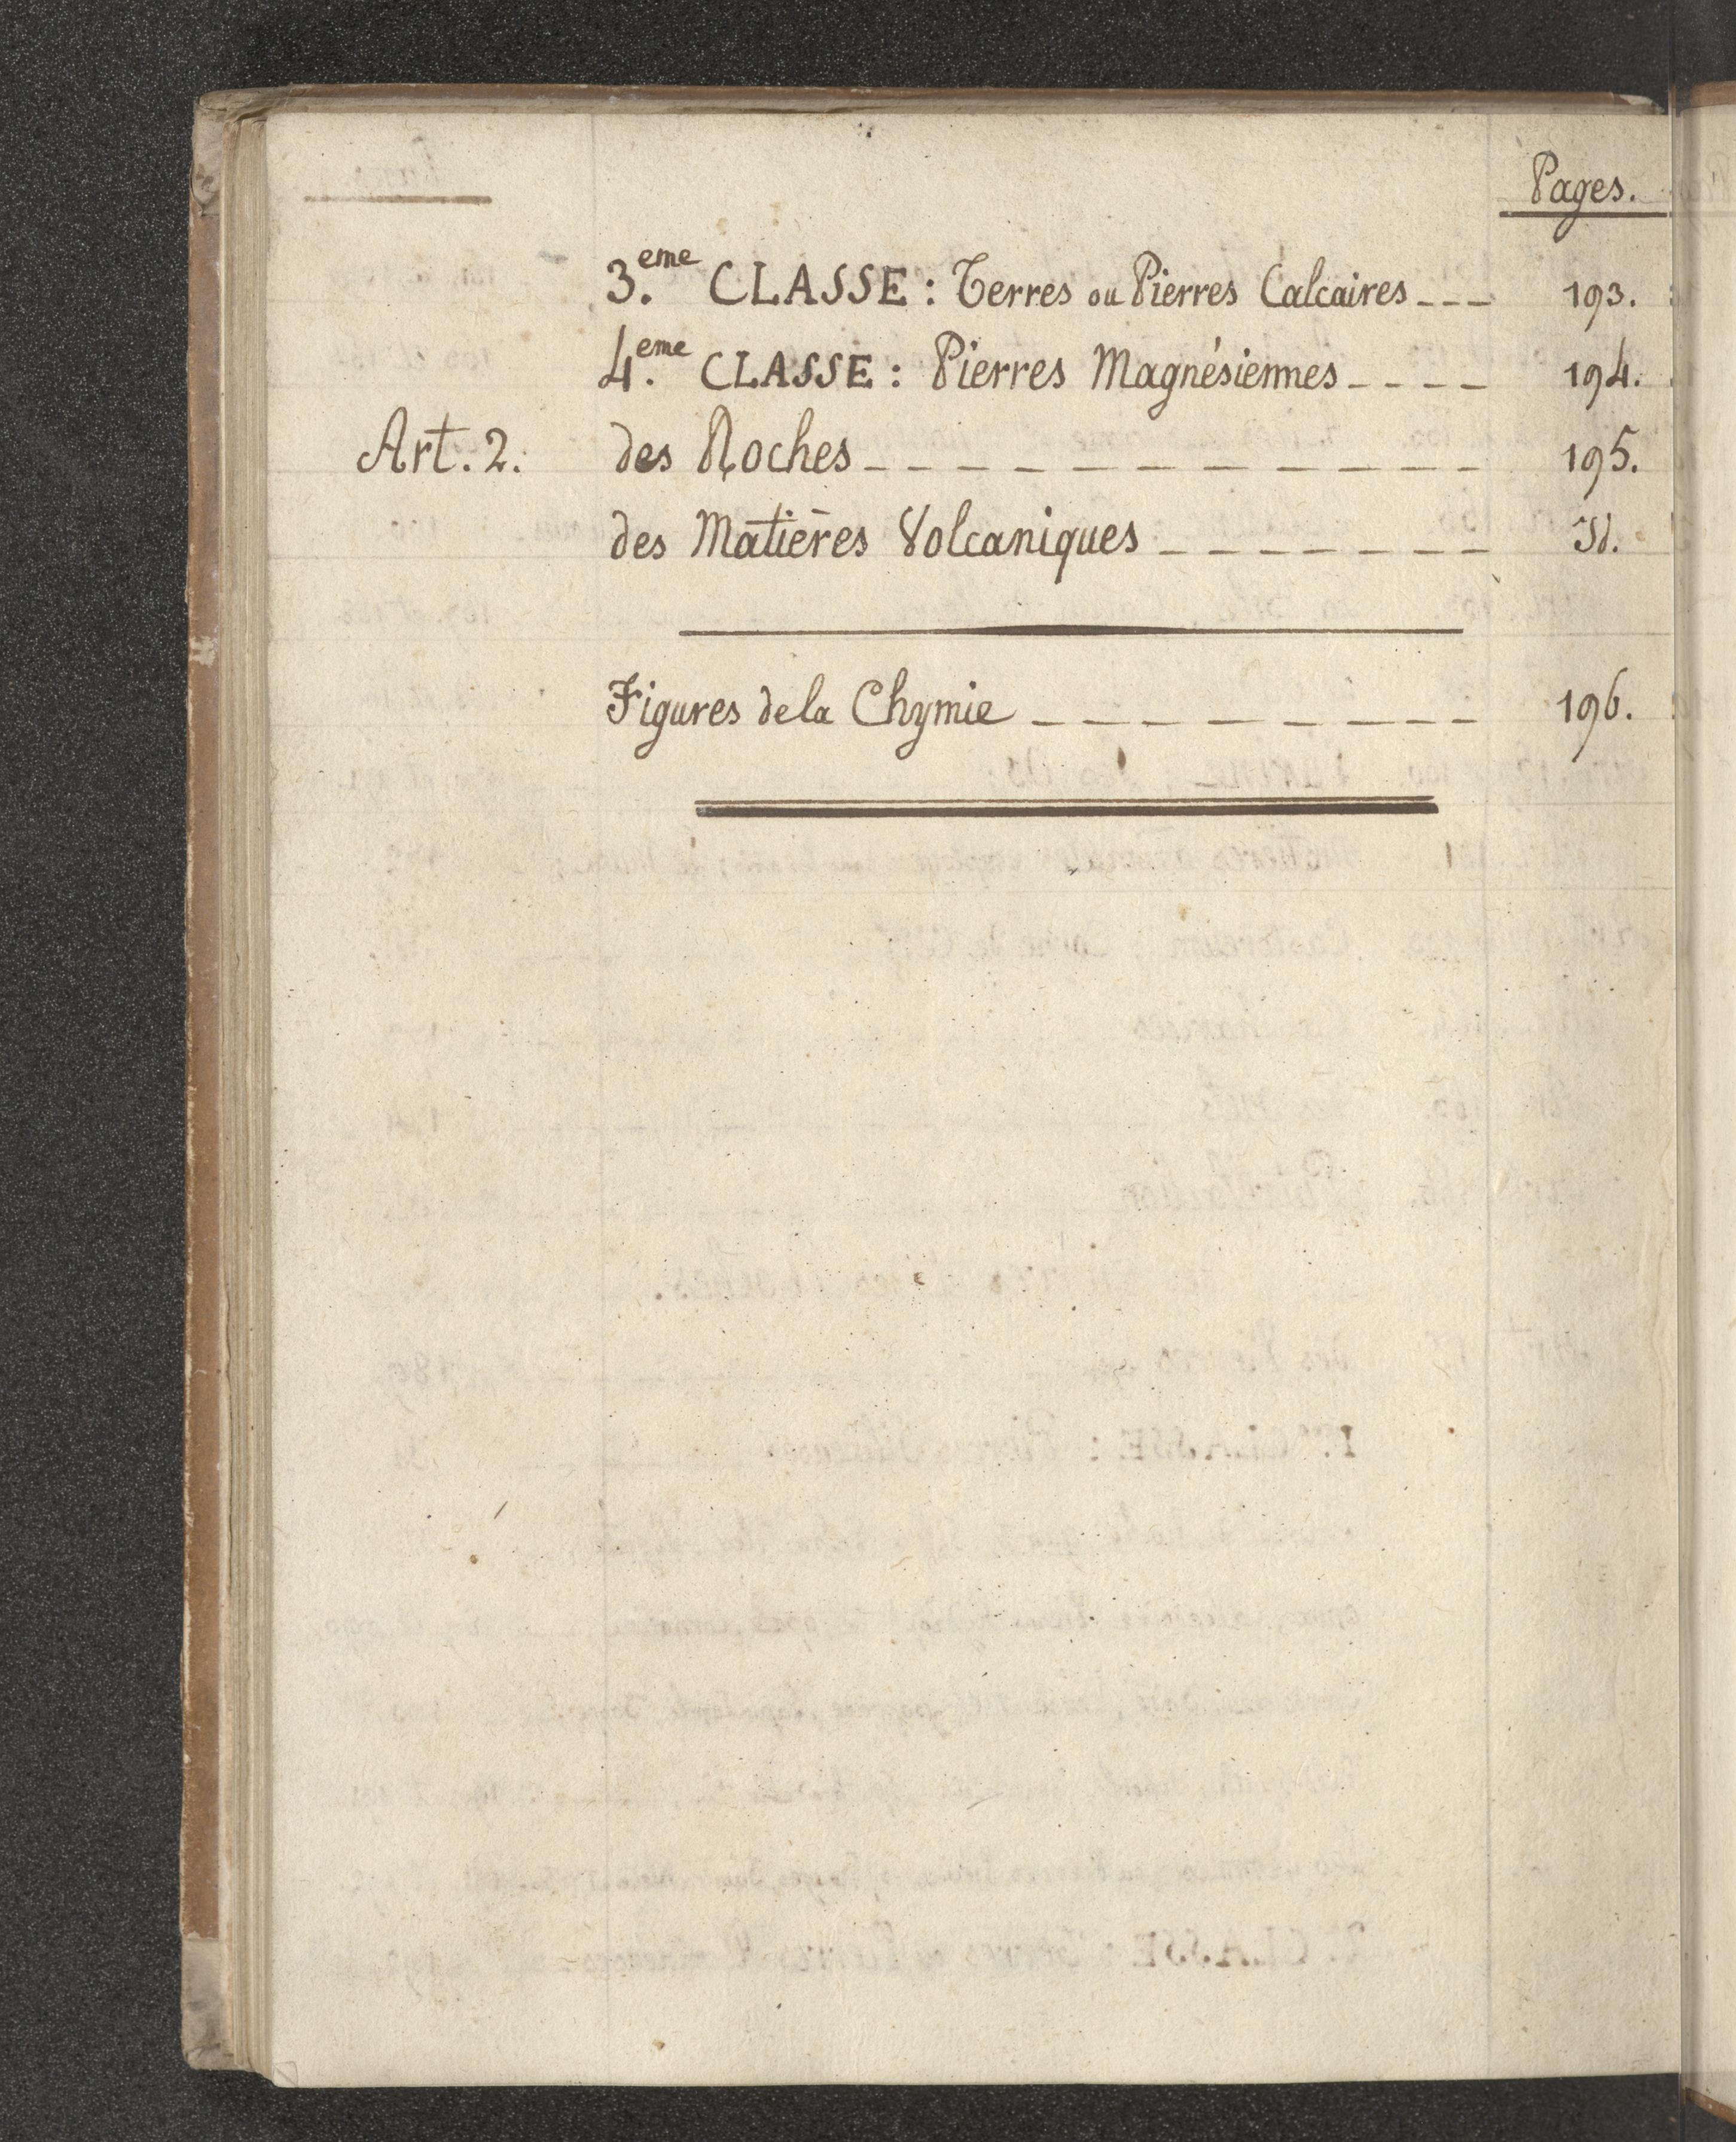 Pages.
3.eme CLASSE : Terres ou Pierres Calcaires --- 193.
4.eme CLASSE : Pierres Magnésiennes ---- 194.
Art. 2. des Roches ------------ 195.
des Matières Volcaniques ------- Id.
Figures de la Chymie --------- 196.